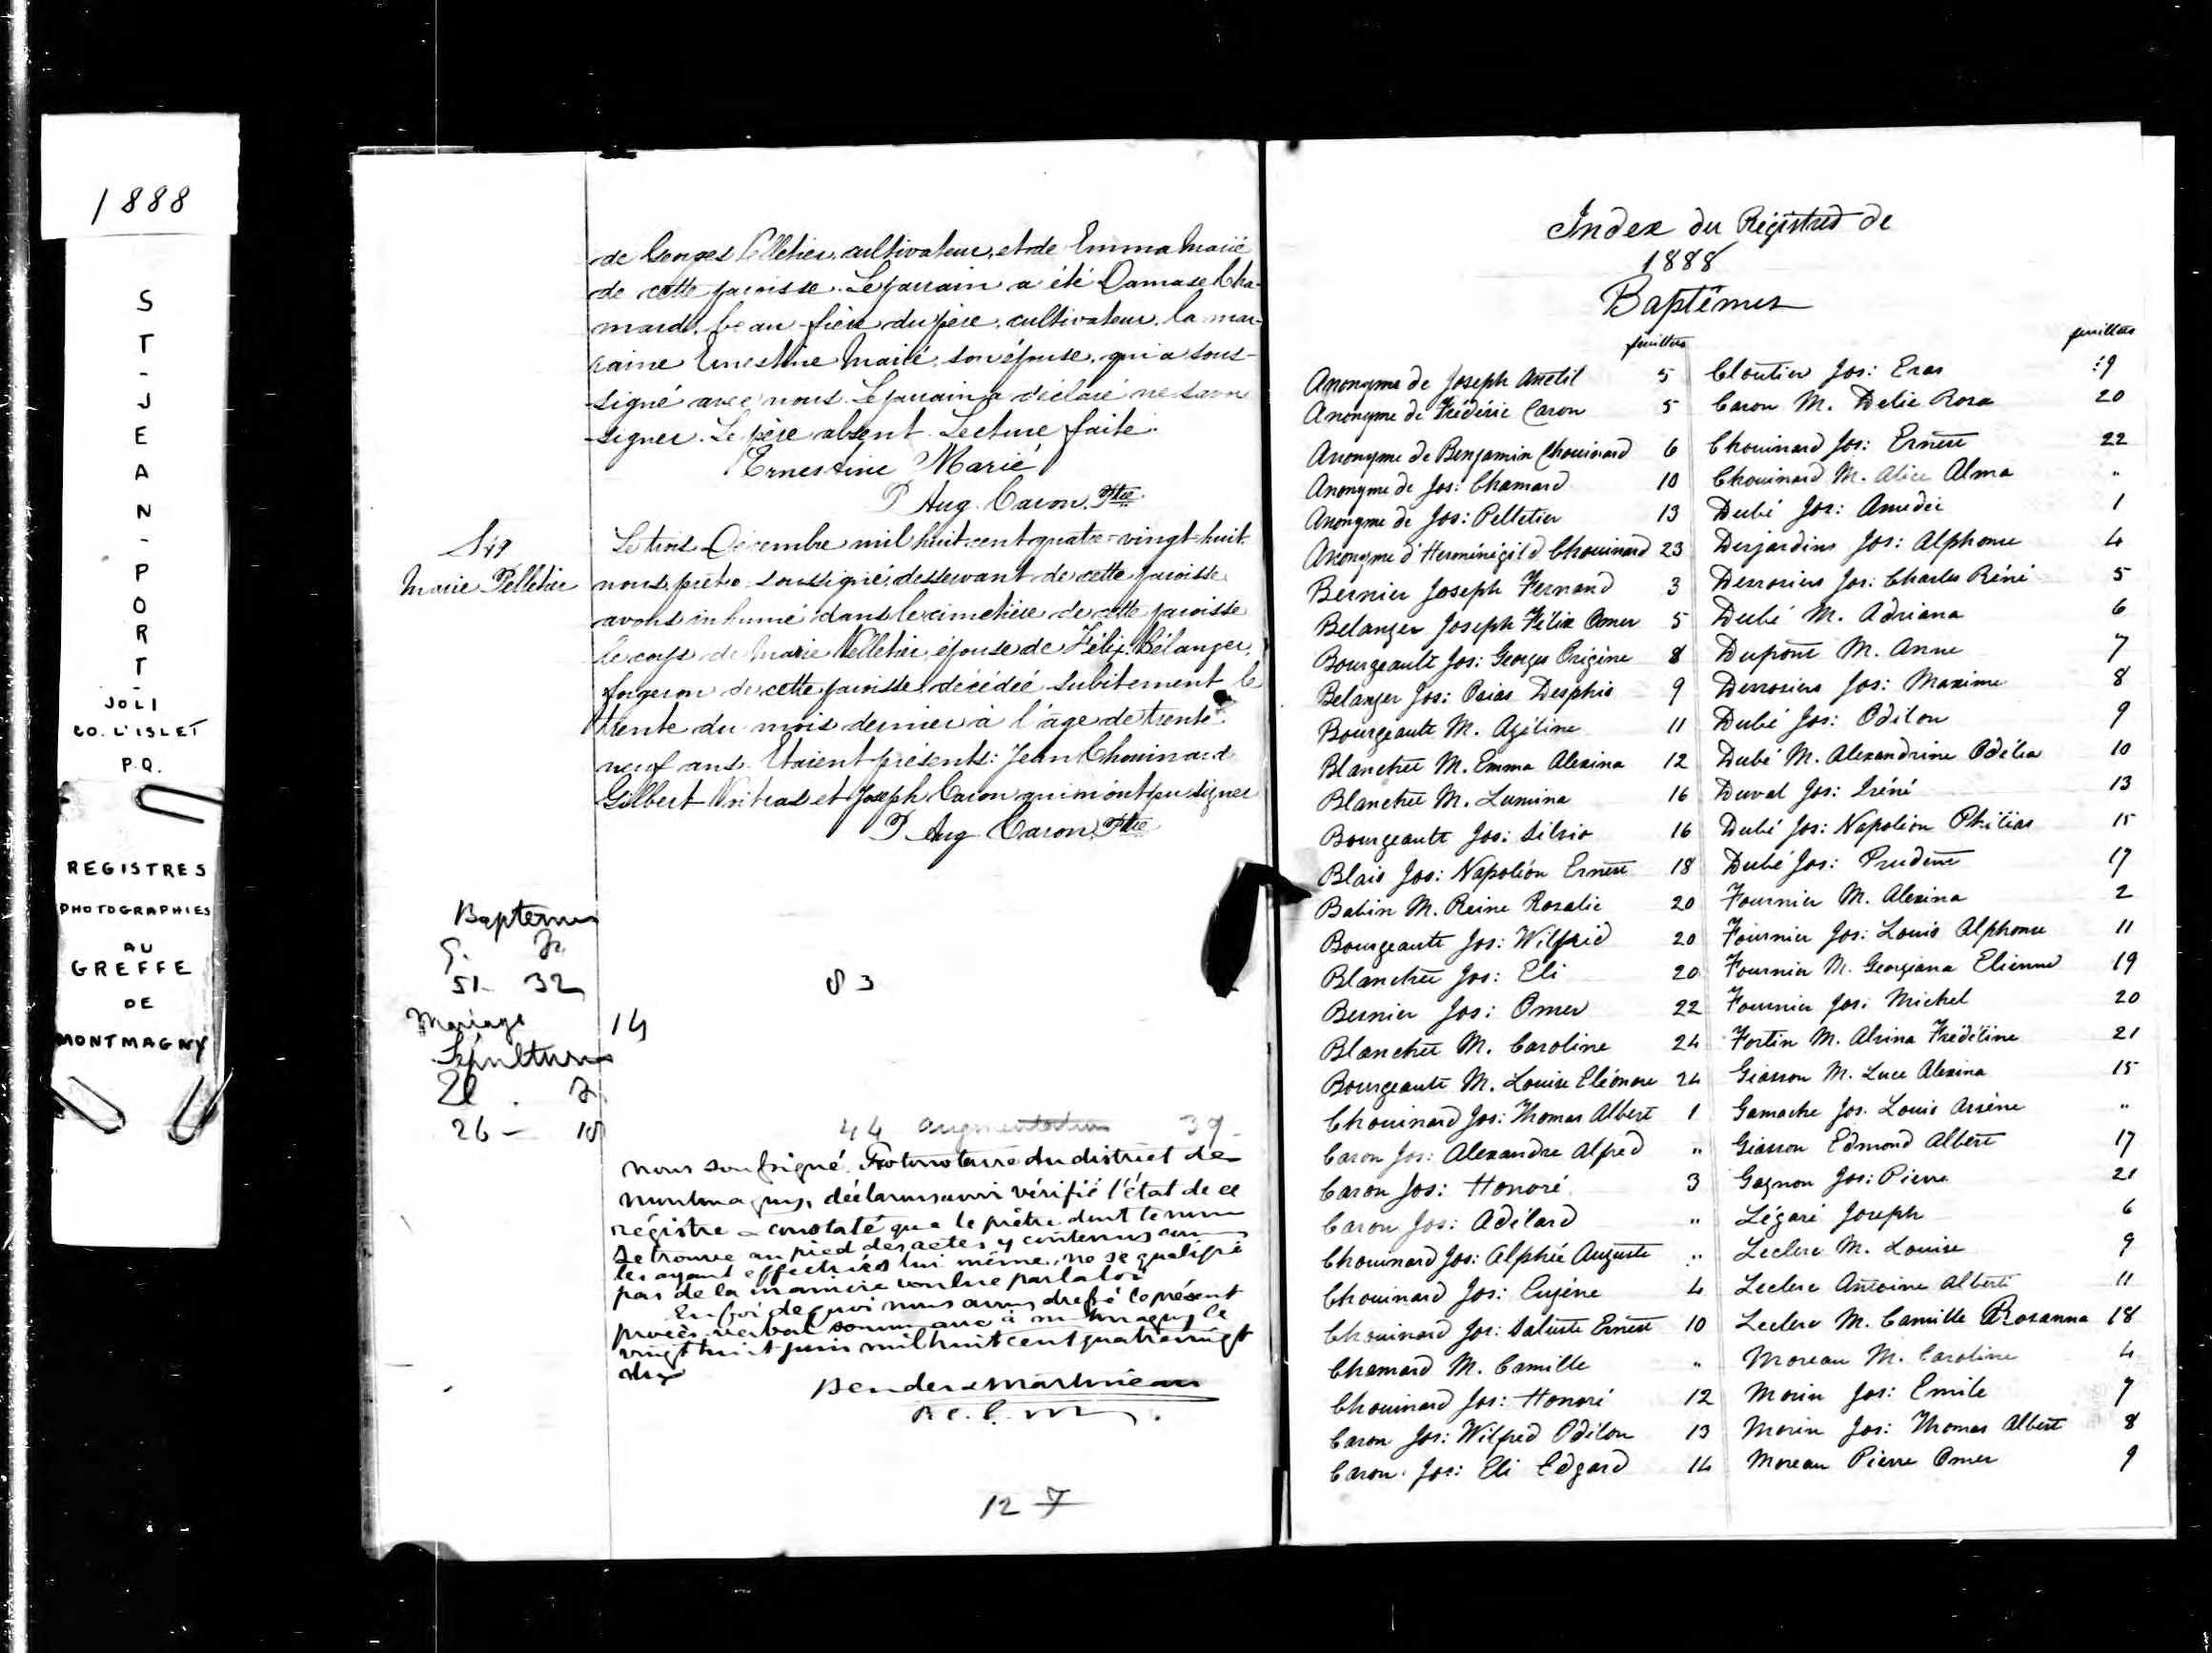 1888
ST-JEAN-PORT-
JOLI
CO. L'ISLET
P.Q.
REGISTRES
PHOTOGRAPHIES
AU
GREFFE
DE
MONTMAGNY
de Georges Pelletier, cultivateur, et de Emma Marié
de cette paroisse. Le parrain a été Damase Cha-
mard, beau-frère du père, cultivateur, la mar-
raine Ernestine Marié, son épouse, qui a sous-
signé avec nous. Le parrain a déclaré ne savoir
signer. Le père absent. Lecture faite.
Ernestine Marié
P Aug. Caron. Ptre
S
Marie Pelletier
Le trois Décembre mil huit cent quatre-vingt-huit
nous, prêtre soussigné, desservant de cette paroisse
avons inhumé dans le cimetière de cette paroisse
le corps de Marie Pelletier, épouse de Félix Bélanger,
forgeron de cette paroisse, décédée subitement le
trente du mois dernier à l'âge de trente
neuf ans. Etaient présents: Jean Chouinard
Gilbert et Joseph Caron qui n'ont pu signer
P Aug Caron Ptre
Baptemes
G.
51- 32
83
Mariage 14
Sépultures
26 -
44 augmentation 39
nous soussigné Protonotaire du district de
Montmagny, déclarons avoir vérifié l'état de ce
régistre constaté que le prêtre dont le nom
se trouve au pied des actes y contenus comme
les ayant effectués lui même, ne se qualifie
pas de la manière voulue par la loi
En foi de quoi nous avons dressé le présent
procès verbal sommaire à Montmagny, le
vingt huit juin mil huit cent quatre vingt
dix
Bender & Martineau
12 7
Index du Régistred de
1888
Baptêmes
feuillets
Anonyme de Joseph Anctil 5
Anonyme de Frédéric Caron 5
Anonyme de Benjamin Chouinard 6
Anonyme de Jos: Chamard 10
Anonyme de Jos: Pelletier 13
Anonyme d'Herménégild Chouinard 23
Bernier Joseph Fernand 3
Belanger Joseph Félix Omer 5
Bourgeault Jos: Georges Origène 8
Belanger Jos: Osias Desphis 9
Bourgeault M. Azéline 11
Blanchet M. Emma Alexina 12
Blanchet M. Lumina 16
Bourgeault Jos: Silvio 16
Blais Jos: Napoléon Ernest 18
Babin M. Reine Rosalie 20
Bourgeault Jos: Wilfrid 20
Blanchet Jos: Eli 20
Bernier Jos: Omer 22
Blanchet M. Caroline 24
Bourgeault M. Louise Eléonore 24
Chouinard Jos: Thomas Albert 1
Caron Jos: Alexandre Alfred "
Caron Jos: Honoré 3
Caron Jos: Adélard "
Chouinard Jos: Alphée Auguste "
Chouinard Jos: Eugène 4
Chouinard Jos: Saluste Ernest 10
Chamard M. Camille "
Chouinard Jos: Honoré 12
Caron Jos: Wilfrid Odilon 13
Caron Jos: Eli Edgard 14
feuillets
Cloutier Jos: Eras 19
Caron M. Delie Rosa 20
Chouinard Jos: Ernest 22
Chouinard M. Alice Alma "
Dubé Jos: Amedée 1
Desjardins Jos: Alphonse 4
Desrosiers Jos: Charles Réné 5
Dubé M. Adriana 6
Dupont M. Anne 7
Desrosiers Jos: Maxime 8
Dubé Jos: Odilon 9
Dubé M. Alexandrine Odélia 10
Duval Jos: Iréné 13
Dubé Jos: Napoléon Philias 15
Dubé Jos: Prudent 17
Fournier M. Alexina 2
Fournier Jos: Louis Alphonse 11
Fournier M. Georgiana Elienne 19
Fournier Jos: Michel 20
Fortin M. Alvina Frédéline 21
Giasson M. Luce Alexina 15
Gamache Jos. Louis Arsène "
Giasson Edmond Albert 17
Gagnon Jos: Pierre 21
Légaré Joseph 6
Leclerc M. Louise 9
Leclerc Antoine Albert 11
Leclerc M. Camille Rosanna 18
Moreau M. Caroline 4
Morin Jos: Emile 7
Morin Jos: Thomas Albert 8
Moreau Pierre Omer 9